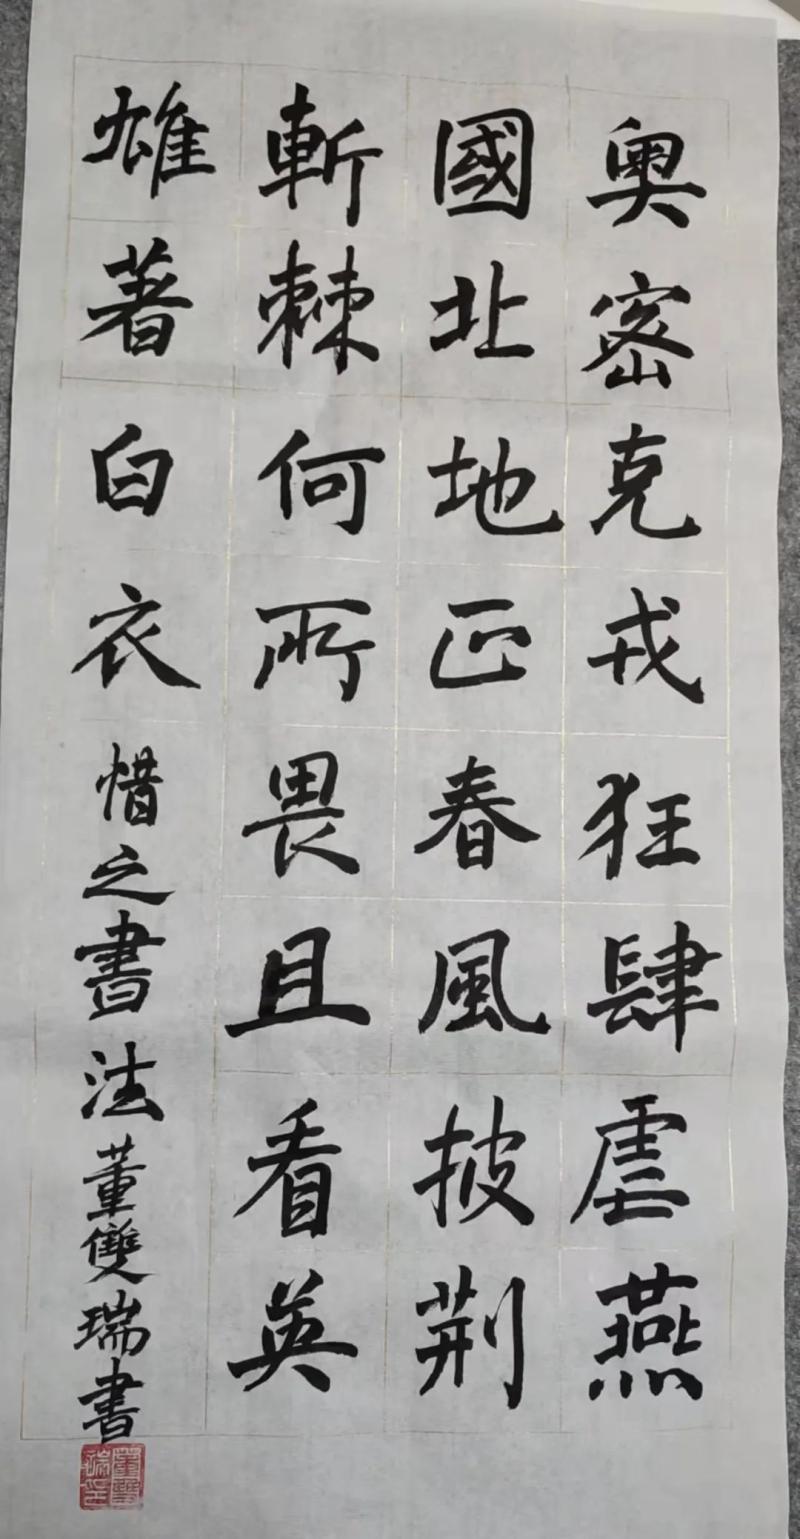 奥密克戎狂肆虐燕
國北地正春風披荆
斬棘何所畏且看英
雄著白衣 惜之書法董雙瑞書
董雙瑞印